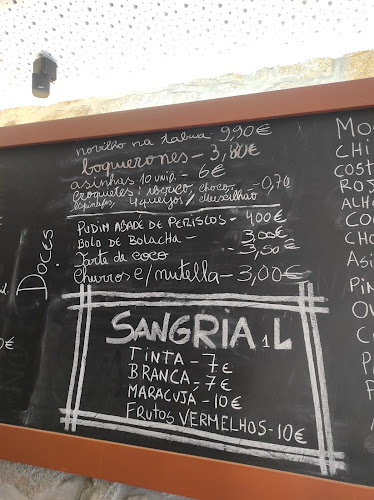 novilho na tabua 9,90€
boquerones - 3,80€
asinhas 10 unid. - 6€
croquetes: iberico, choco, - 0,70
espinafres 4 queijos / mexilhão
Doces
PUDIM ABADE DE PERISCOS - 400€
BOLO DE BOLACHA - 3,00€
Tarte de coco -- 3,50€
Churros c/ nutella - 3,00€
SANGRIA 1L
TINTA - 7€
BRANCA - 7€
MARACUJA - 10€
FRUTOS VERMELHOS - 10€
MO
CHI
COST
ROJ
ALHO
CO
CHO
Asi
PIN
OV
C
PA
P